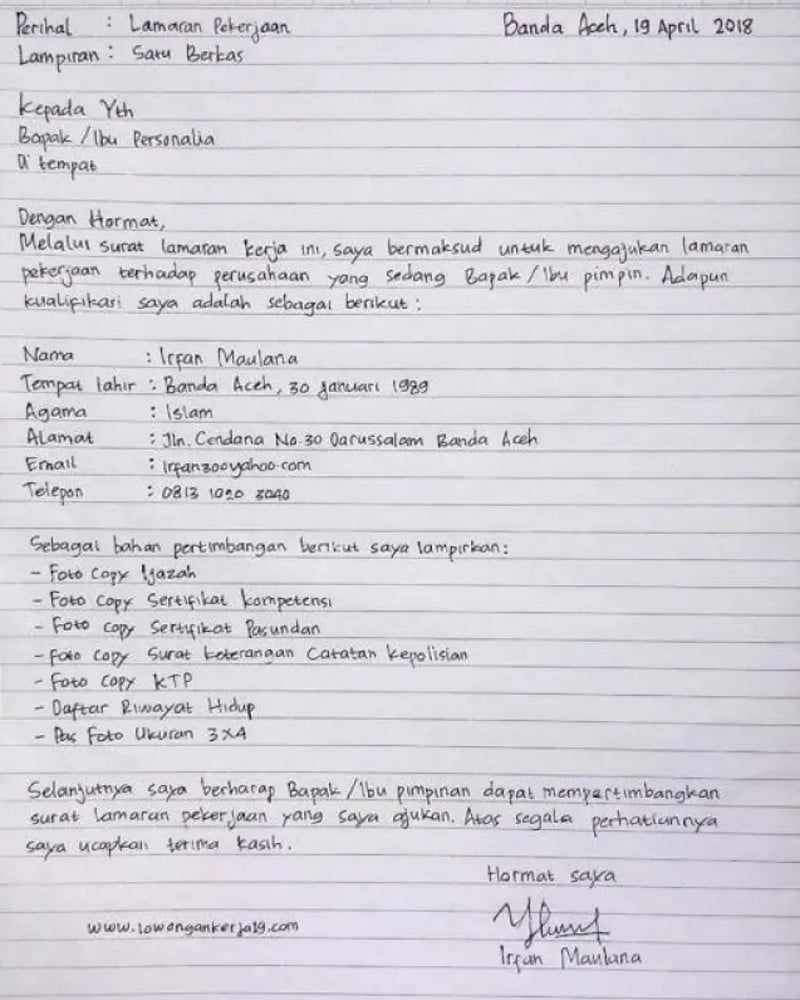 Perihal : Lamaran Pekerjaan Banda Aceh, 19 April 2018
Lampiran : Satu Berkas
Kepada Yth
Bapak / Ibu Personalia
Di tempat
Dengan Hormat,
Melalui surat lamaran kerja ini, saya bermaksud untuk mengajukan lamaran
pekerjaan terhadap perusahaan yang sedang Bapak / Ibu pimpin. Adapun
kualifikasi saya adalah sebagai berikut :
Nama : Irfan Maulana
Tempat lahir : Banda Aceh, 30 Januari 1989
Agama : Islam
Alamat : Jln. Cendana No.30 Darussalam Banda Aceh
Email : Irfan300yahoo.com
Telepon : 0813 1020 3040
Sebagai bahan pertimbangan berikut saya lampirkan :
- Foto Copy Ijazah
- Foto Copy Sertifikat Kompetensi
- Foto Copy Sertifikat Pasundan
- Foto Copy Surat Keterangan Catatan Kepolisian
- Foto Copy KTP
- Daftar Riwayat Hidup
- Pas Foto Ukuran 3x4
Selanjutnya saya berharap Bapak / Ibu pimpinan dapat mempertimbangkan
surat lamaran pekerjaan yang saya ajukan. Atas segala perhatiannya
saya ucapkan terima kasih.
Hormat saya
www.lowongankerja19.com
Irfan Maulana